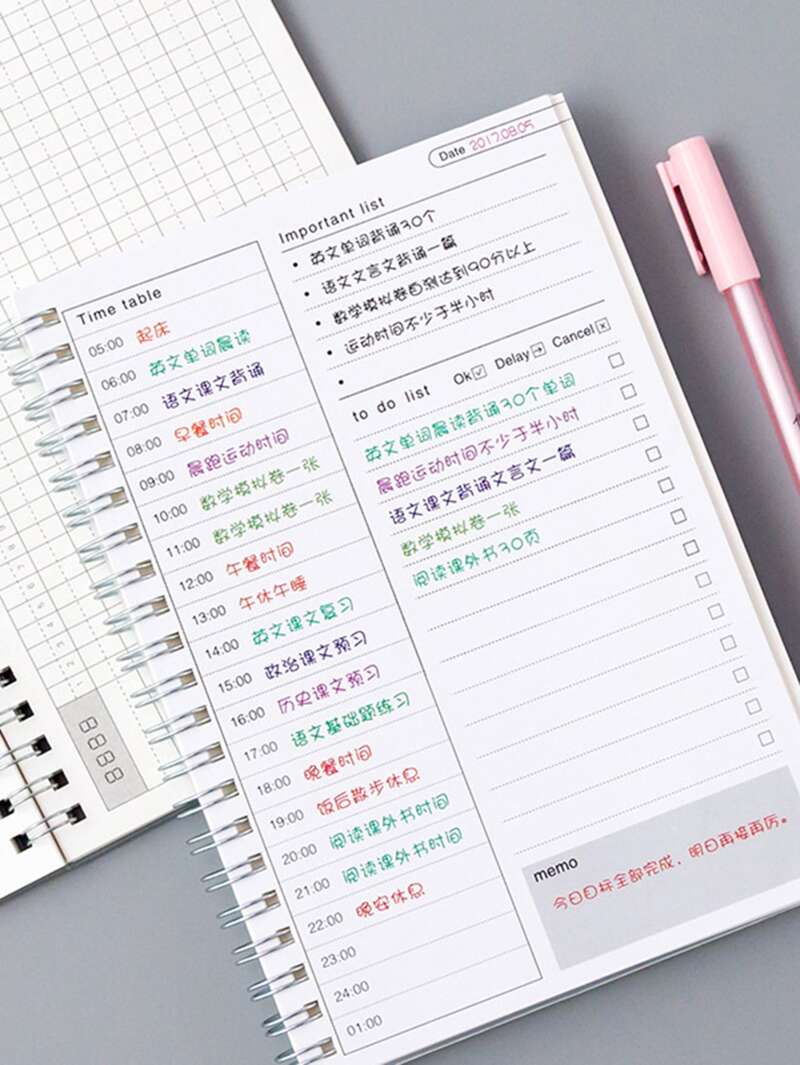 Date 2017.08.05
Important list
• 英文单词背诵30个
• 语文文言文背诵一篇
• 数学模拟卷自测达到90分以上
• 运动时间不少于半小时
•
to do list Ok Delay Cancel
英文单词晨读背诵30个单词
晨跑运动时间不少于半小时
语文课文背诵文言文一篇
数学模拟卷一张
阅读课外书30页
Time table
05:00 起床
06:00 英文单词晨读
07:00 语文课文背诵
08:00 早餐时间
09:00 晨跑运动时间
10:00 数学模拟卷一张
11:00 数学模拟卷一张
12:00 午餐时间
13:00 午休午睡
14:00 英文课文复习
15:00 政治课文预习
16:00 历史课文预习
17:00 语文基础题练习
18:00 晚餐时间
19:00 饭后散步休息
20:00 阅读课外书时间
21:00 阅读课外书时间
22:00 晚安休息
23:00
24:00
01:00
memo
今日目标全部完成，明日再接再厉。